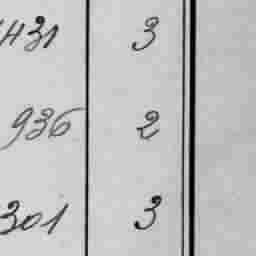 1431 3
936 2
301 3